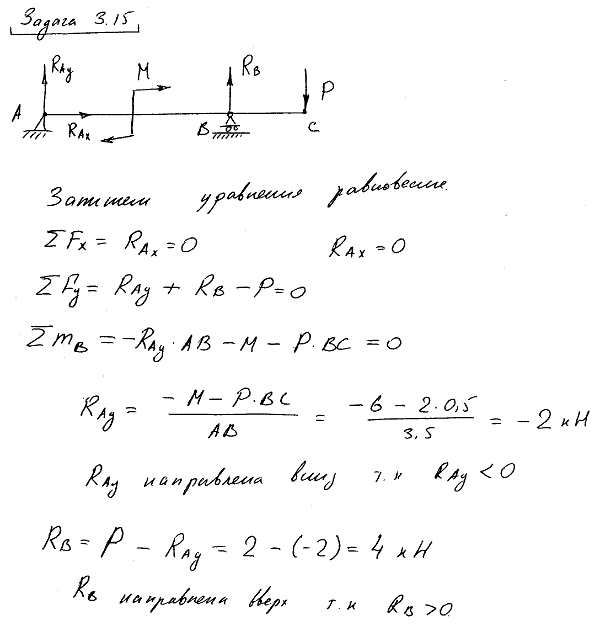 Задача 3.15
R_Ay M R_B P
A R_Ax B C
Запишем уравнения равновесие.
ΣF_x = R_Ax = 0 R_Ax = 0
ΣF_y = R_Ay + R_B - P = 0
Σm_B = -R_Ay · AB - M - P · BC = 0
R_Ay = (-M - P · BC) / AB = (-6 - 2 · 0,5) / 3,5 = -2 кН
R_Ay направлена вниз т.к R_Ay < 0
R_B = P - R_Ay = 2 - (-2) = 4 кН
R_B направлена вверх т.к R_B > 0